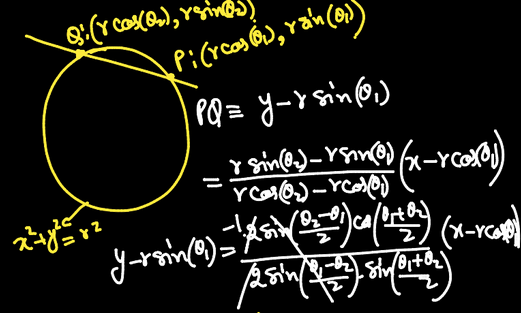 Q:(r cos(θ₂), r sin(θ₂))
P:(r cos(θ₁), r sin(θ₁))
PQ ≡ y - r sin(θ₁)
= r sin(θ₂) - r sin(θ₁) / r cos(θ₂) - r cos(θ₁) (x - r cos(θ₁))
x² + y² = r²
y - r sin(θ₁) = -1 2 sin(θ₂-θ₁/2) cos(θ₁+θ₂/2) / 2 sin(θ₁-θ₂/2) . sin(θ₁+θ₂/2) (x - r cos(θ₁))